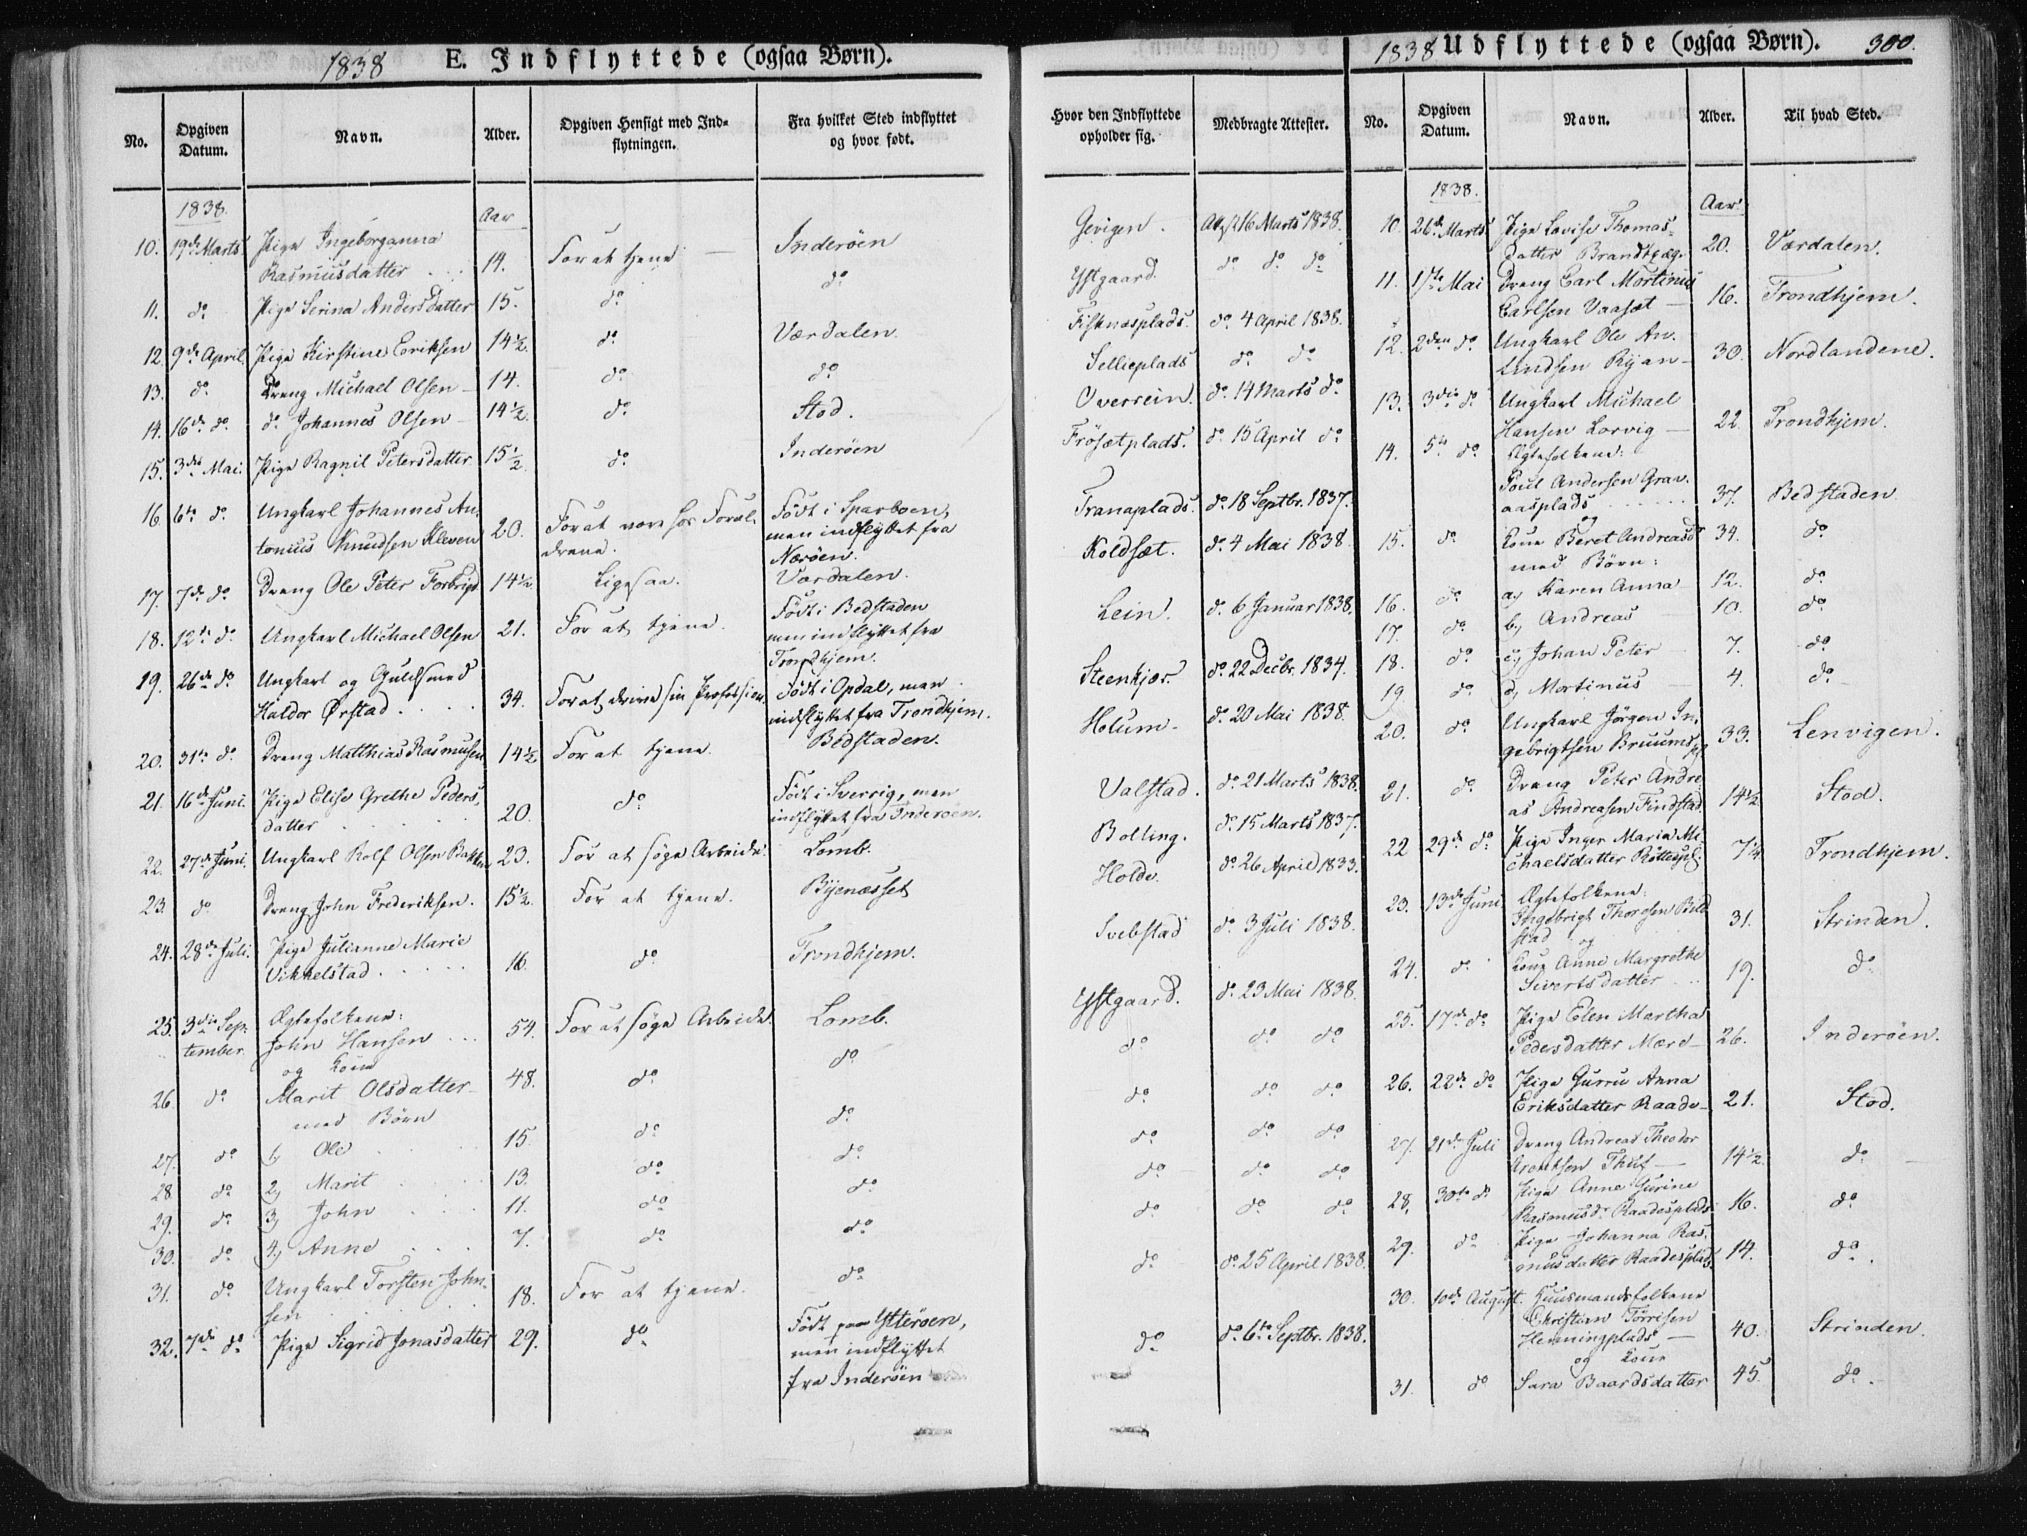 1838 E. Indflyttede (ogsaa Børn).
No. Opgiven Datum. Navn. Alder. Opgiven Hensigt med Ind=flytningen. Fra hvilket Sted indflyttet og hvor født.
1838. Aar
10. 19de Marts. Pige Ingeborganna
Rasmusdatter . . . 14. For at tjene — Inderöen
11. do Pige Serina Andersdatter 15. do do
12. 9de April. Pige Kirstine Eeriksen 14½. do Værdalen.
13. do Dreng Michael Olsen — 14. do do
14. 16de do. do Johannes Olsen — 14½. do Stod.
15. 3die Mai. Pige Ragnil Petersdatter 15½. do Inderöen
16. 6te do. Ungkarl Johannes An=
tonius Knudsen Kleven 20. For at være hos Foræl=
drene. Födt i Sparboen,
men indflyttet fra
Næröen.
17. 7de do Dreng Ole Peter Forbrigd 14½. Ligesaa. Værdalen.
18. 12te do. Ungkarl Michael Olsen 21. For at tjene. Födt i Bedstaden
men indflyttet fra
Trondhjem.
19. 26de do Ungkarl og Guldsmed
Haldor Ørstad . . . . 34. For at drive sin Profession. Födt i Opdal, men
indflyttet fra Trondhjem.
20. 31te do. Dreng Matthias Rasmusen 14½ For at tjene. Bedstaden.
21. 16de Juni. Pige Elise Grethe Peders=
datter . . . . . 20. do. Födt i Sverrig, men
indflyttet fra Inderöen.
22. 27de Juni. Ungkarl Rolf Olsen Bakken 23. For at söge Arbeide. Lomb.
23. do Dreng John Frederiksen. 15½. For at tjene. Byenæsset
24. 28de Juli. Pige Julianne Marie
Vikkelstad . . . . . 16. do Trondhjem.
25. 3die Sep=
tember. Ægtefolkene:
John Hansen . . . 54. For at söge Arbeide. Lomb.
og Kone
26. do Marit Olsdatter — 48. do do
med Börn
27. do 1, Ole . . . 15. do do
28. do 2, Marit . . . 13. do do
29. do 3, John . . . 11. do do
30. do 4, Anne . . . 7. do do
31. do Ungkarl Torsten John=
sen . . . . 18. For at tjene. do
32. 7de do Pige Sigrid Jonasdatter 29. do Födt paa Ytteröen,
men indflyttet
fra Inderöen
1838 Udflyttede (ogsaa Børn). 300.
Hvor den Indflyttede opholder sig. Medbragte Attester. No. Opgiven Datum. Navn. Alder. Til hvad Sted.
Gevigen. Attest 16 Marts 1838.
Ystgaard. do do do
Fisknæsplads. do. 4 April 1838.
Sellieplads do do
Overrein. do. 14 Marts do
Frösætplads. do. 15 April do
Tranaplads. do. 18 Septbr. 1837.
Koldsæt. do. 4 Mai 1838.
Lein. do. 6 Januar 1838.
Steenkjær. do. 22 Decbr. 1834.
Holum. do. 20 Mai 1838.
Valstad. do. 21 Marts 1838.
Bolling. do. 15 Marts 1837.
Holde. do. 26 April 1833.
Svebstad do. 3 Juli 1838.
Ystgaard. do. 23 Mai 1838.
do do do
do do do
do do do
do do do
do do do
do do. 25 April 1838.
do do. 6te Septbr. 1838.
1838. Aar.
10. 26de Marts. Pige Lovise Thomas=
datter 20. Værdalen.
11. 1ste Mai Dreng Carl Mortinus
Carlsen Vaasæt — 16. Trondhjem.
12. 2den do. Ungkarl Ole An=
Ryan — 30. Nordlandene.
13. 3die do Ungkarl Michael
Hansen Lorvig — 22. Trondhjem.
14. 5te do Ægtefolkene:
Poul Andersen Grav=
aasplads . . . . 37. Bedstaden
og
15. do Kone Beret Andreasd 34. do
med Börn:
16. do a, Karen Anna 12. do
17. do b, Andreas 10. do
18. do c, Johan Peter — 7. do
19. do d, Mortinus — 4. do
20. do Ungkarl Jörgen In=
gebrigtsen 33. Lenvigen.
21. do Dreng Peter Andre=
as Andreasen Findstad 14½ Stod.
22 29de do Pige Inger Maria Mi=
chaelsdatter 7¼ Trondhjem.
23. 13de Juni Ægtefolkene:
Ingebrigt Thoresen Bild=
stad og 31. Strinden.
24. do Kone Anne Margrethe
Sivertsdatter . . . 19. do
25. 17de do Pige Elen Martha
Pedersdatter Mære — 26. Inderöen.
26. 22de do Pige Gurru Anna
Eriksdatter Raade — 21. Stod.
27. 21de Juli Dreng Andreas Theodor
Arentsen Thuf — 14½. do
28. 30te do Pige Anne Gurine
Rasmusdr Raadesplads 16. do
29. do Pige Johanna Ras=
musdatter Raadesplads 14. do.
30. 10de August. Huusmandsfolkene
Christian Torrisen
Hemningplads — 40. Strinden.
og Kone
31. do Sara Baardsdatter 45. do.